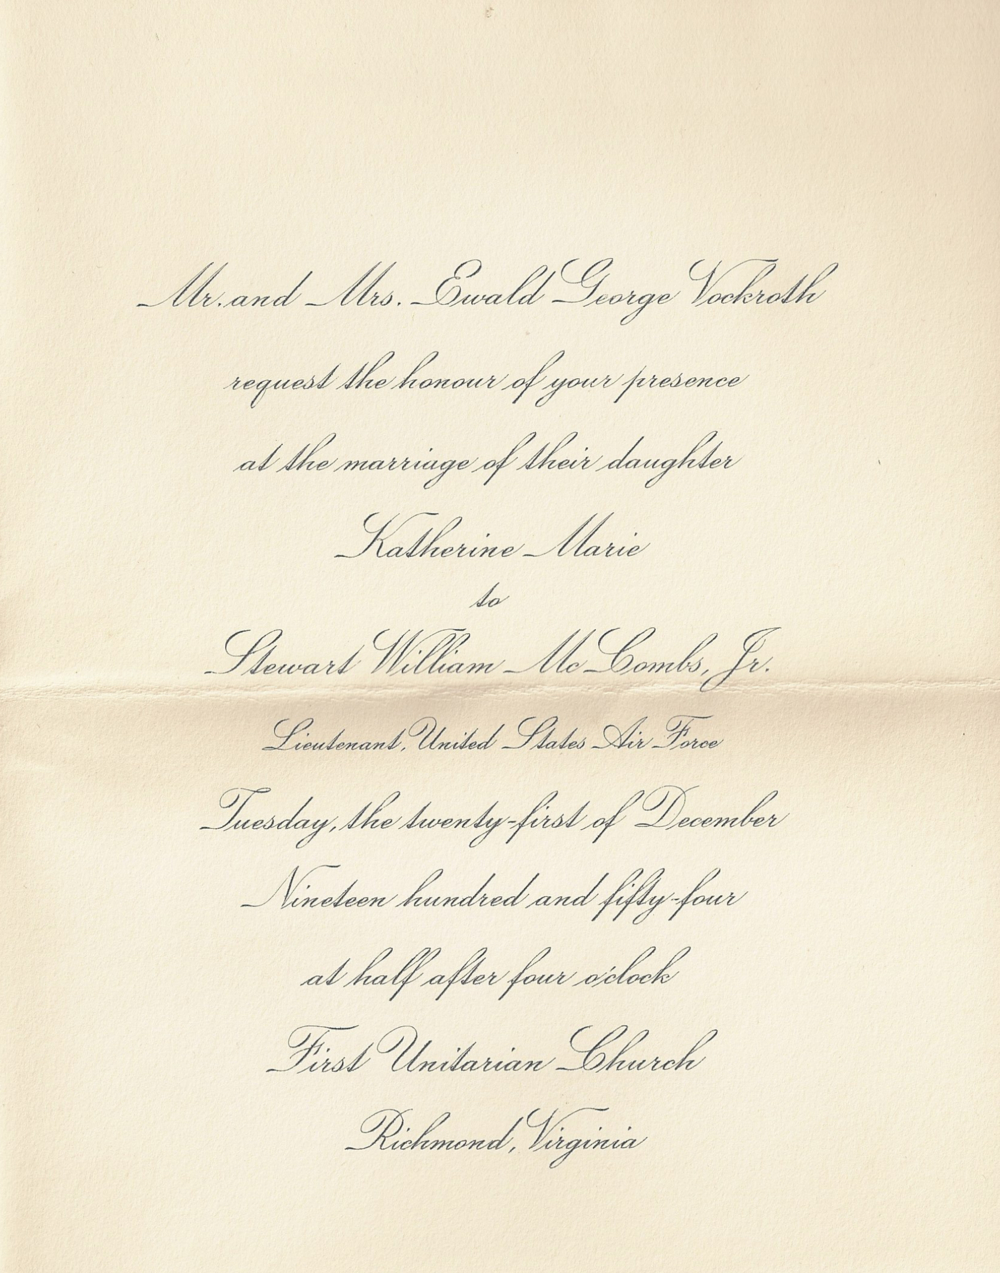 Mr. and Mrs. Ewald George Vockroth
request the honour of your presence
at the marriage of their daughter
Katherine Marie
to
Stewart William McCombs, Jr.
Lieutenant, United States Air Force
Tuesday, the twenty-first of December
Nineteen hundred and fifty-four
at half after four o'clock
First Unitarian Church
Richmond, Virginia